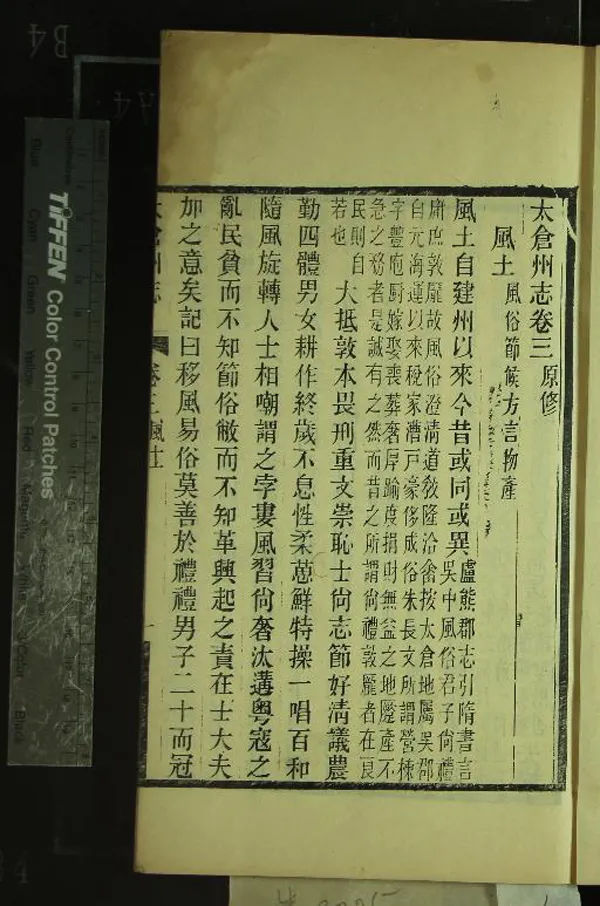 太倉州志卷三 原修
風土 風俗節候方言物產
風土自建州以來今昔或同或異 盧熊郡志引隋書言
吳中風俗君子尚禮
庸庶敦龐故風俗澄清道敎隆洽 按太倉地屬吳郡
自元海運以來稅家漕戶豪侈成俗朱長文所謂營棟
宇豐庖厨嫁娶喪葬奢厚踰度捐財無益之地蹷產不
急之務者是誠有之然而昔之所謂尚禮敦龐者在良
民則自
若也 大抵敦本畏刑重文崇恥士尚志節好清議農
勤四體男女耕作終歲不息性柔葸鮮特操一唱百和
隨風旋轉人士相嘲謂之孛婁風習尚奢汰遘粵寇之
亂民貧而不知節俗敝而不知革興起之責在士大夫
加之意矣記曰移風易俗莫善於禮禮男子二十而冠
太倉州志 卷三風土 一
TIFFEN Color Control Patches
Blue Cyan Green Yellow Red Magenta
B4
A4